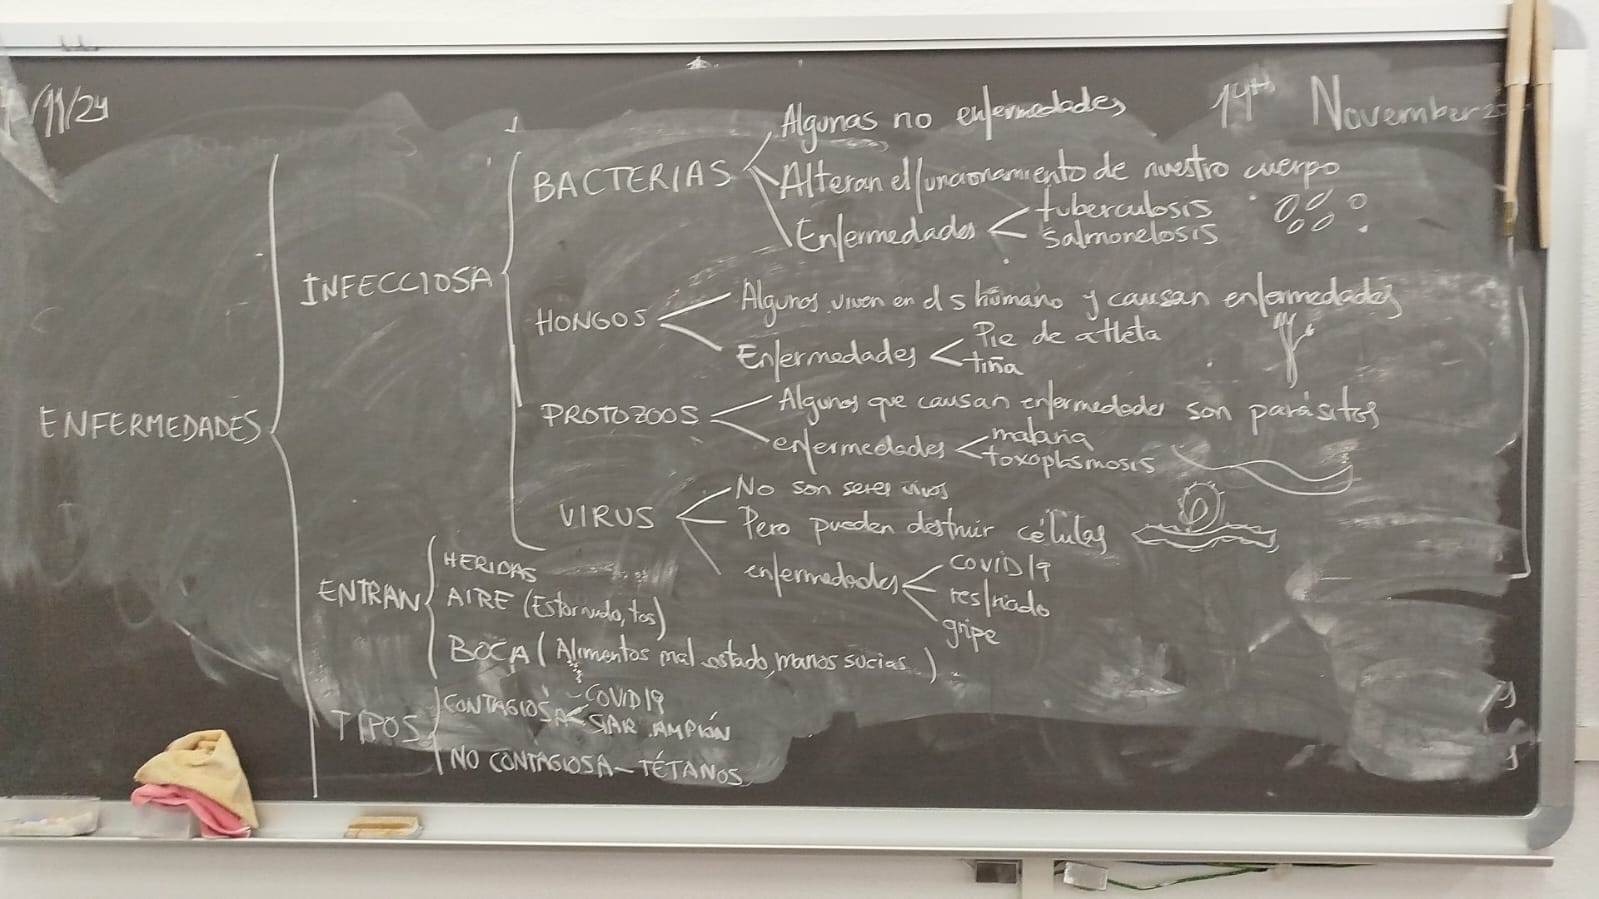 /11/24
14th November
ENFERMEDADES
INFECCIOSA
BACTERIAS
Algunas no enfermedades
Alteran el funcionamiento de nuestro cuerpo
Enfermedades
tuberculosis
salmonelosis
HONGOS
Algunos viven en el s humano y causan enfermedades
Enfermedades
Pie de atleta
tiña
PROTOZOOS
Algunos que causan enfermedades son parásitos
enfermedades
malaria
toxoplasmosis
VIRUS
No son seres vivos
Pero pueden destruir células
enfermedades
COVID19
resfriado
gripe
ENTRAN
HERIDAS
AIRE (Estornudo, tos)
BOCA (Alimentos mal estado, manos sucias)
TIPOS
CONTAGIOSA
COVID19
SARAMPIÓN
NO CONTAGIOSA - TÉTANOS